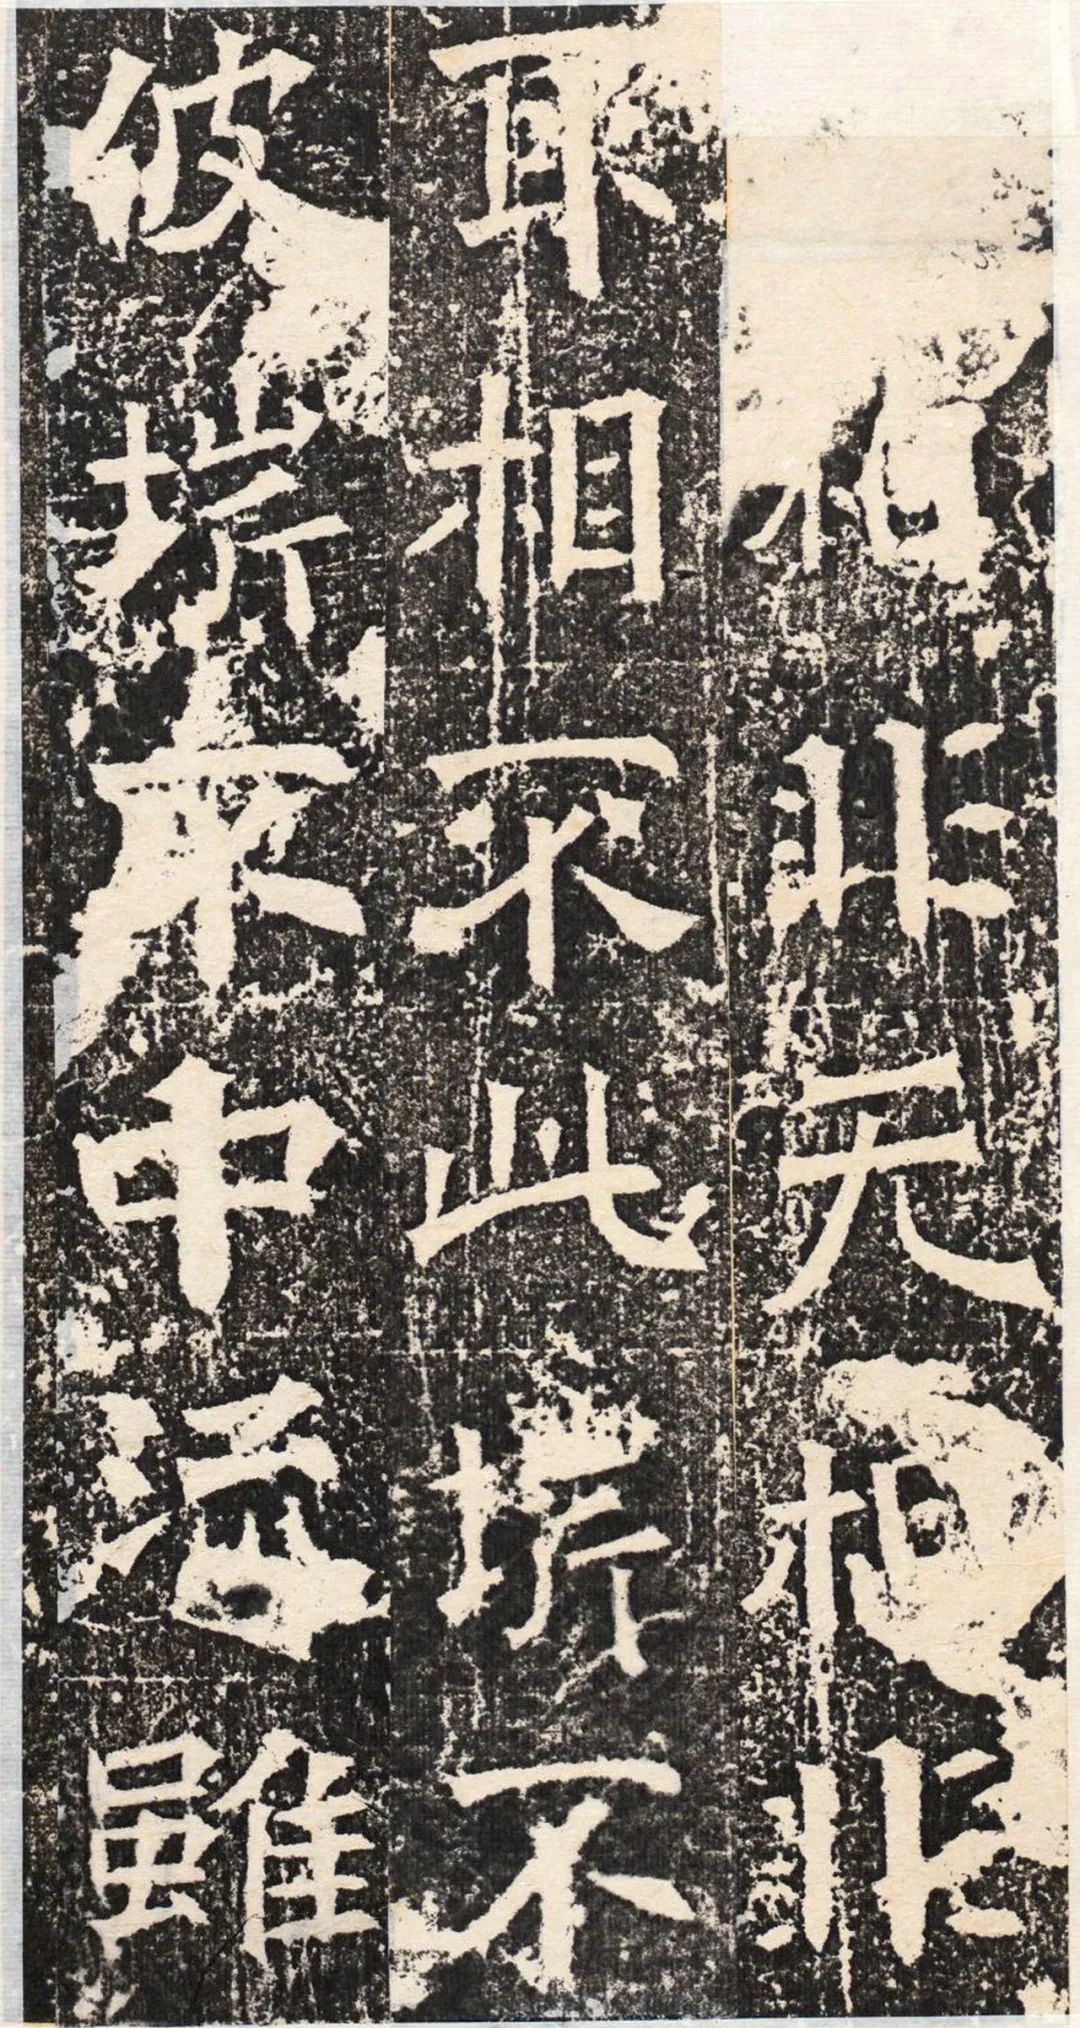 相非无相非
取相不此圻不
彼圻不中流雖